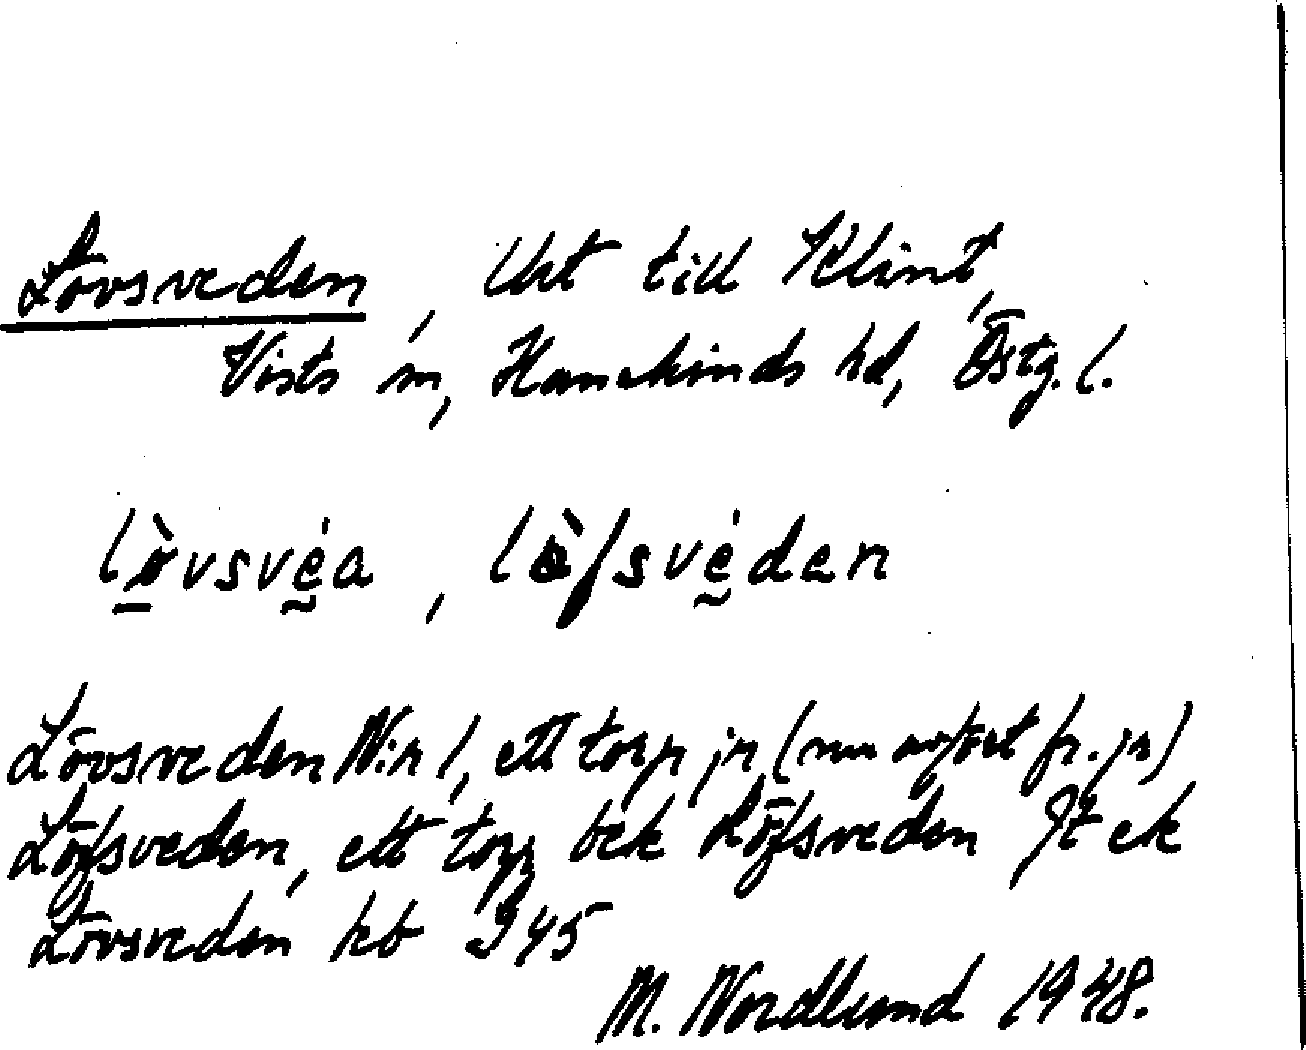 Lövsveden, Utt till Klint,
Vists sn, Hanekinds hd, Östg. l.
lö̀vsvéa, lö̀fsvéden
Lövsveden N:r 1, ett torp jr (nu avfört fr. jr)
Löfsveden, ett torp bek Löfsveden Jt ek
Lövsveden kb 945
M. Nordlund 1948.